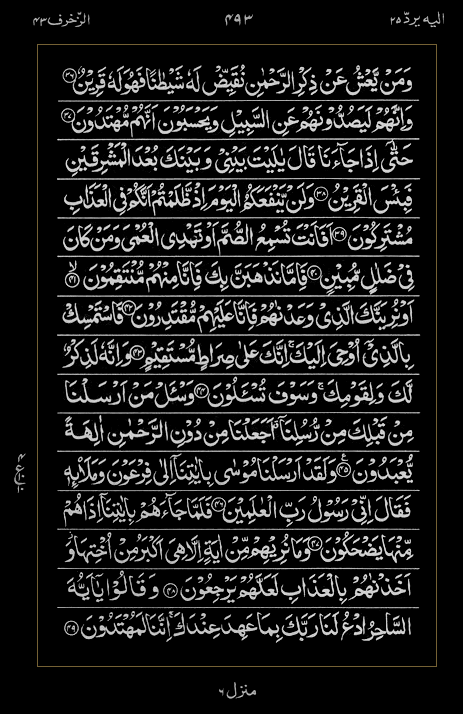 الیه یردّ ۲۵ ۴۹۳ الزّخرف ۴۳
وَمَنْ يَّعْشُ عَنْ ذِكْرِ الرَّحْمٰنِ نُقَيِّضْ لَهٗ شَيْطٰنًا فَهُوَ لَهٗ قَرِيْنٌ ﴿۳۶﴾
وَاِنَّهُمْ لَيَصُدُّوْنَهُمْ عَنِ السَّبِيْلِ وَيَحْسَبُوْنَ اَنَّهُمْ مُّهْتَدُوْنَ ﴿۳۷﴾
حَتّٰٓى اِذَا جَآءَنَا قَالَ يٰلَيْتَ بَيْنِيْ وَبَيْنَكَ بُعْدَ الْمَشْرِقَيْنِ
فَبِئْسَ الْقَرِيْنُ ﴿۳۸﴾ وَلَنْ يَّنْفَعَكُمُ الْيَوْمَ اِذْ ظَّلَمْتُمْ اَنَّكُمْ فِي الْعَذَابِ
مُشْتَرِكُوْنَ ﴿۳۹﴾ اَفَاَنْتَ تُسْمِعُ الصُّمَّ اَوْ تَهْدِى الْعُمْيَ وَمَنْ كَانَ
فِيْ ضَلٰلٍ مُّبِيْنٍ ﴿۴۰﴾ فَاِمَّا نَذْهَبَنَّ بِكَ فَاِنَّا مِنْهُمْ مُّنْتَقِمُوْنَ ﴿۴۱﴾ۙ
اَوْ نُرِيَنَّكَ الَّذِيْ وَعَدْنٰهُمْ فَاِنَّا عَلَيْهِمْ مُّقْتَدِرُوْنَ ﴿۴۲﴾ فَاسْتَمْسِكْ
بِالَّذِيْٓ اُوْحِيَ اِلَيْكَ ۚ اِنَّكَ عَلٰى صِرَاطٍ مُّسْتَقِيْمٍ ﴿۴۳﴾ وَاِنَّهٗ لَذِكْرٌ
لَّكَ وَلِقَوْمِكَ ۚ وَسَوْفَ تُسْـَٔلُوْنَ ﴿۴۴﴾ وَسْـَٔلْ مَنْ اَرْسَلْنَا
مِنْ قَبْلِكَ مِنْ رُّسُلِنَآ اَجَعَلْنَا مِنْ دُوْنِ الرَّحْمٰنِ اٰلِهَةً
يُّعْبَدُوْنَ ﴿۴۵﴾ وَلَقَدْ اَرْسَلْنَا مُوْسٰى بِاٰيٰتِنَآ اِلٰى فِرْعَوْنَ وَمَلَا۟ىِٕهٖ
فَقَالَ اِنِّيْ رَسُوْلُ رَبِّ الْعٰلَمِيْنَ ﴿۴۶﴾ فَلَمَّا جَآءَهُمْ بِاٰيٰتِنَآ اِذَا هُمْ
مِّنْهَا يَضْحَكُوْنَ ﴿۴۷﴾ وَمَا نُرِيْهِمْ مِّنْ اٰيَةٍ اِلَّا هِيَ اَكْبَرُ مِنْ اُخْتِهَا ۚ وَ
اَخَذْنٰهُمْ بِالْعَذَابِ لَعَلَّهُمْ يَرْجِعُوْنَ ﴿۴۸﴾ وَقَالُوْا يٰٓاَيُّهَ
السّٰحِرُ ادْعُ لَنَا رَبَّكَ بِمَا عَهِدَ عِنْدَكَ ۚ اِنَّنَا لَمُهْتَدُوْنَ ﴿۴۹﴾
منزل ۶